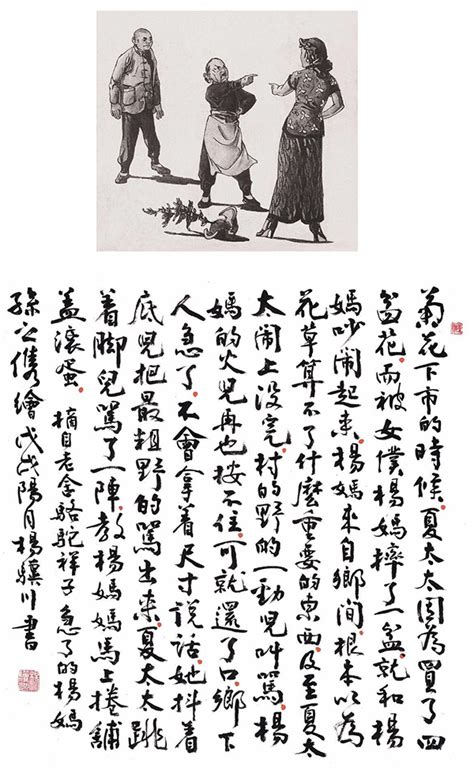 菊花下市的時候夏太太因為買了四
盆花而被女僕楊媽摔了一盆就和楊
媽吵闹起來楊媽來自鄉間根本以為
花草算不了什麼重要的東西及至夏太
太闹上没完村的野的一勁兒叫罵楊
媽的火兒再也按不住可就還了口鄉下
人急了不會拿着尺寸說話她抖着
底兒把最粗野的罵出來夏太太跳
着腳兒罵了一陣教楊媽馬上捲鋪
蓋滾蛋 摘自老舍駱駝祥子 急了的楊媽
孫之儁繪戊戌陽月楊驥川書